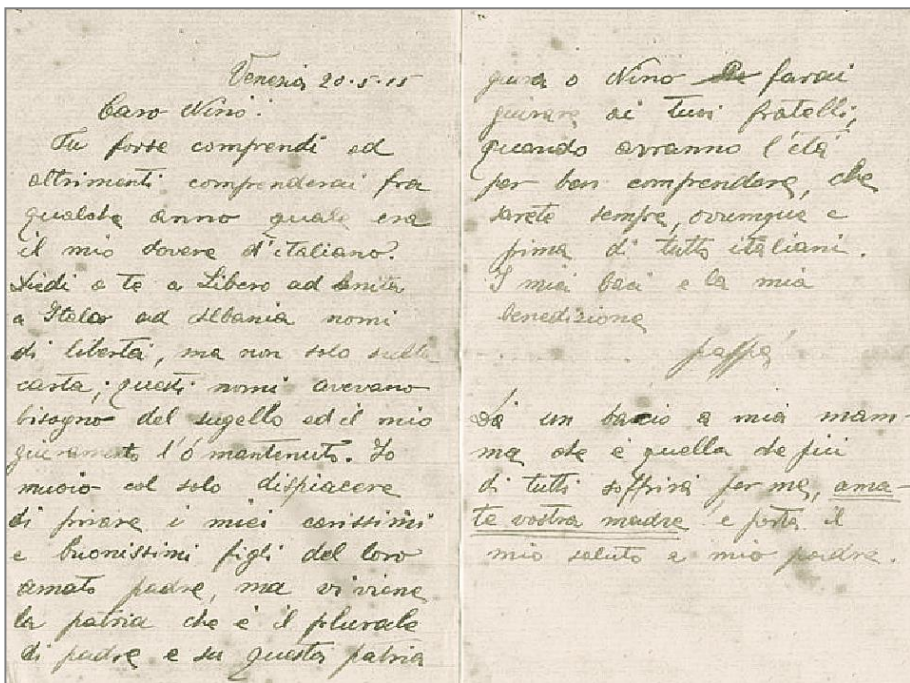 Venezia 20-5-15
Caro Nino.
Tu forse comprendi od
altrimenti comprenderai fra
qualche anno quale era
il mio dovere d'italiano.
Diedi a te a Libero ad Anita
a Italo ad Albania nomi
di libertà, ma non solo sulla
carta; questi nomi avevano
bisogno del sugello ed il mio
giuramento l'ò mantenuto. Io
muoio col solo dispiacere
di privare i miei carissimi
e buonissimi figli del loro
amato padre, ma vi viene
la patria che è il plurale
di padre e su questa patria
giura o Nino farai
giurare ai tuoi fratelli,
quando avranno l'età
per ben comprendere, che
sarete sempre, ovumque e
prima di tutto italiani.
I miei baci e la mia
benedizione
pappà
Dà un bacio a mia mam-
ma che è quella che più
di tutti soffrirà per me, ama-
te vostra madre e porta il
mio saluto a mio padre.